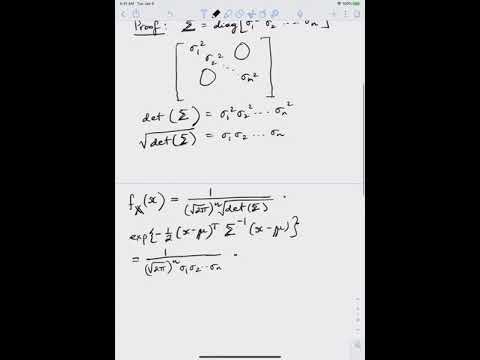 5:41 AM Tue Jan 5
Proof: Σ = diag[σ₁² σ₂² ... σₙ²]
[σ₁² σ₂² ... σₙ² O O]
det (Σ) = σ₁² σ₂² ... σₙ²
√det(Σ) = σ₁ σ₂ ... σₙ
f_X(x) = 1/((√2π)ⁿ √det(Σ)) ·
exp{-1/2 (x-μ)ᵀ Σ⁻¹ (x-μ)}
= 1/((√2π)ⁿ σ₁ σ₂ ... σₙ) ·